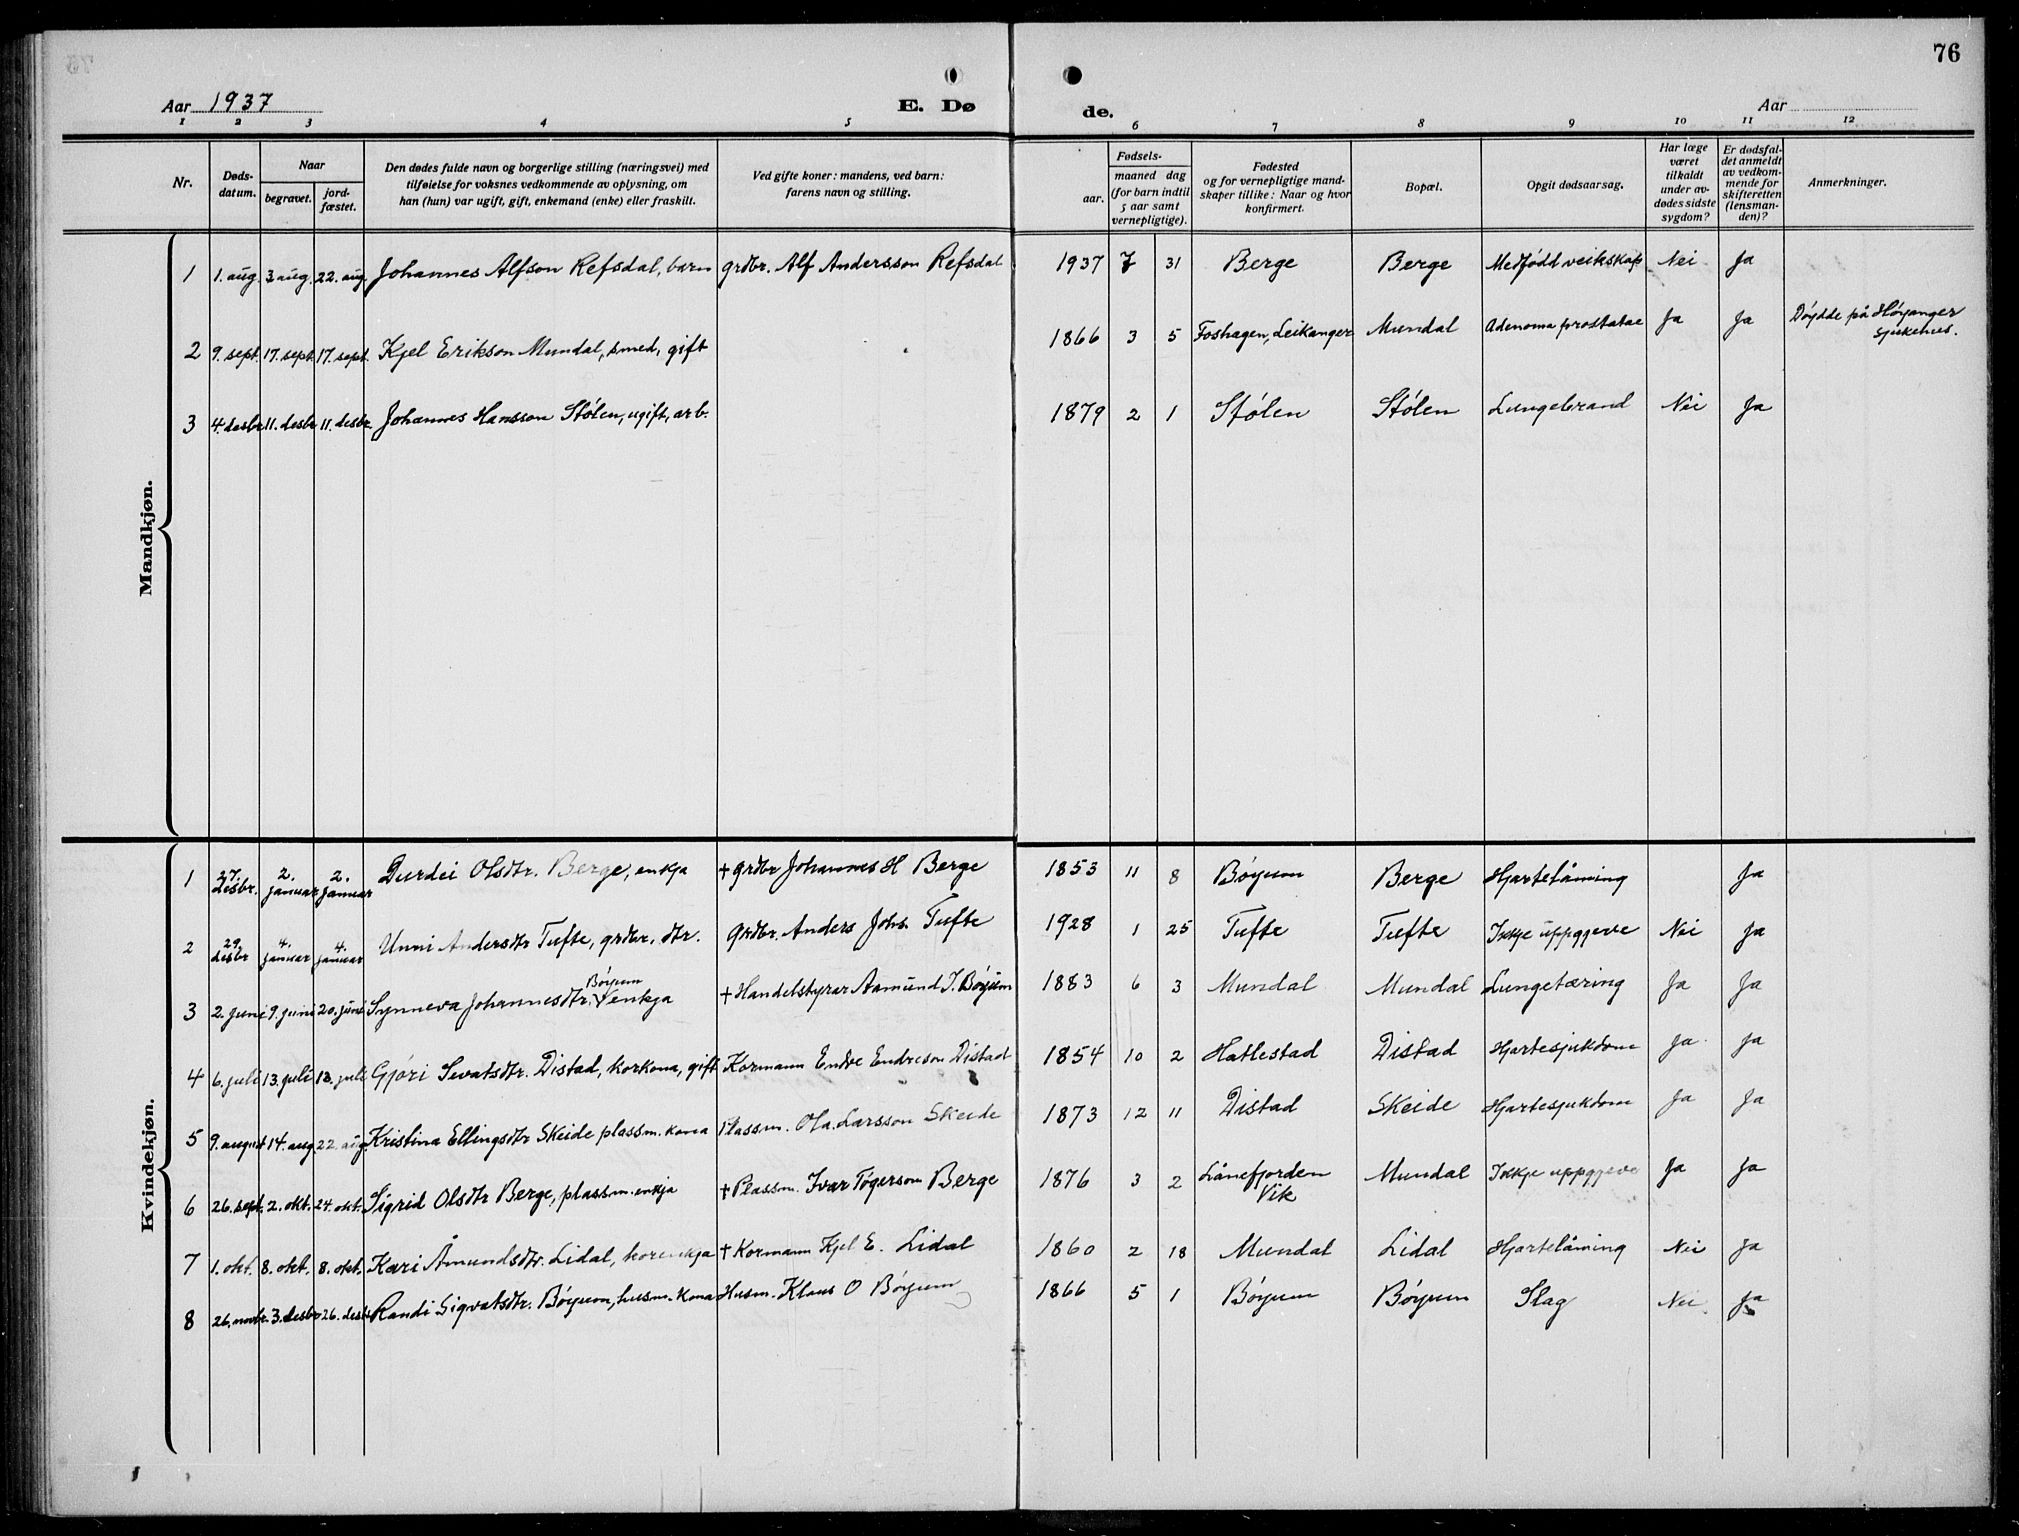 76
Aar 1937
E. Dø
de.
Aar
1 2 3 4 5 6 7 8 9 10 11 12
Nr.
Døds-
datum.
Naar
begravet.
jord-
fæstet.
Den dødes fulde navn og borgerlige stilling (næringsvei) med
tilføielse for voksnes vedkommende av oplysning, om
han (hun) var ugift, gift, enkemand (enke) eller fraskilt.
Ved gifte koner: mandens, ved barn:
farens navn og stilling.
Fødsels-
aar.
maaned dag
(for barn indtil
5 aar samt
vernepligtige).
Fødested
og for vernepligtige mand-
skaper tillike: Naar og hvor
konfirmert.
Bopæl.
Opgit dødsaarsag.
Har læge
været
tilkaldt
under av-
dødes sidste
sygdom?
Er dødsfal-
det anmeldt
av vedkom-
mende for
skifteretten
(lensman-
den)?
Anmerkninger.
Mandkjøn.
1 1. aug. 3 aug. 22. aug. Johannes Alfson Refsdal, barn grdbr. Alf Andersson Refsdal 1937 7 31 Berge Berge Medfødd veikskap Nei Ja
2 9. sept. 17. sept. 17. sept. Kjel Erikson Mundal, smed, gift 1866 3 5 Foshagen, Leikanger Mundal Adenoma prostatae Ja Ja Døydde på Høyanger
sjukehus.
3 4. desbr. 11. desbr. 11. desbr. Johannes Hansson Stølen, ugift, arb. 1879 2 1 Stølen Stølen Lungebrand Nei Ja
Kvindekjøn.
1 27. desbr. 2. januar 2. januar Durdei Olsdtr. Berge, enkja + grdbr Johannes H Berge 1853 11 8 Bøyum Berge Hjartelåming Ja
2 29. desbr 4. januar 4. januar Unni Andersdtr Tufte, grdbr. dtr. Grdbr. Anders Johs. Tufte 1928 1 25 Tufte Tufte Ikkje uppgjeve Nei Ja
3 2. juni 9. juni 20. juni Synneva Johannesdtr. Bøyum enkja + Handelstyrar Aamund J. Bøyum 1883 6 3 Mundal Mundal Lungetæring Ja Ja
4 6. juli 13. juli 13. juli Gjøri Sevatsdtr. Distad, korkona, gift Kormann Endre Endreson Distad 1854 10 2 Hatlestad Distad Hjartesjukdom Ja Ja
5 9. august 14. aug. 22. aug. Kristina Ellingsdtr Skeide plassm. kona Plassm. Ola Larsson Skeide 1873 12 11 Distad Skeide Hjartesjukdom Ja Ja
6 26. sept. 2. okt. 24. okt. Sigrid Olsdtr Berge, plassm. enkja + Plassm. Ivar Tøgerson Berge 1876 3 2 Lånefjorden
Vik Mundal Ikkje uppgjeve Ja Ja
7 1. okt. 8. okt. 8. okt. Kari Åmundsdtr. Lidal, korenkja + Kormann Kjel E. Lidal 1860 2 18 Mundal Lidal Hjartelåming Nei Ja
8 26. novbr. 3. desbr 26. desbr Randi Sigvatsdtr. Bøyum, husm. kona Husm. Klaus O Bøyum 1866 5 1 Bøyum Bøyum Slag Nei Ja